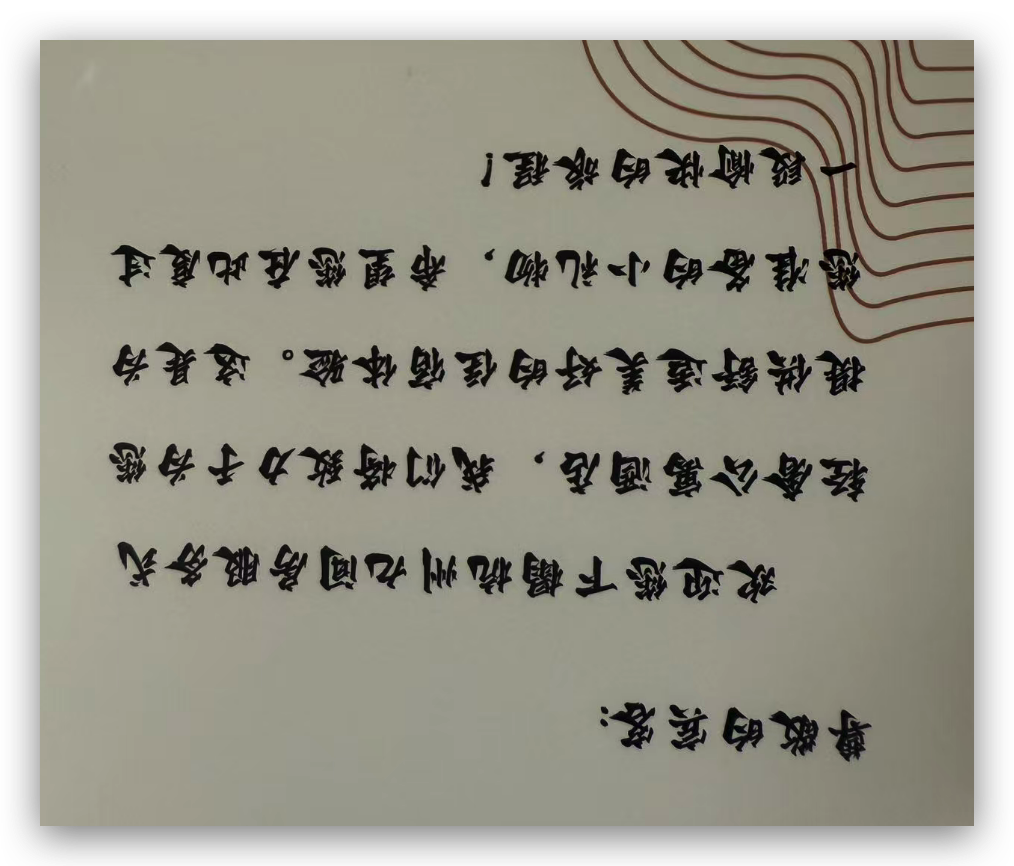 尊敬的宾客：
欢迎您下榻杭州九间房服务式
轻奢公寓酒店，我们将致力于为您
提供舒适美好的住宿体验。这是为
您准备的小礼物，希望您在此度过
一段愉快的旅程！